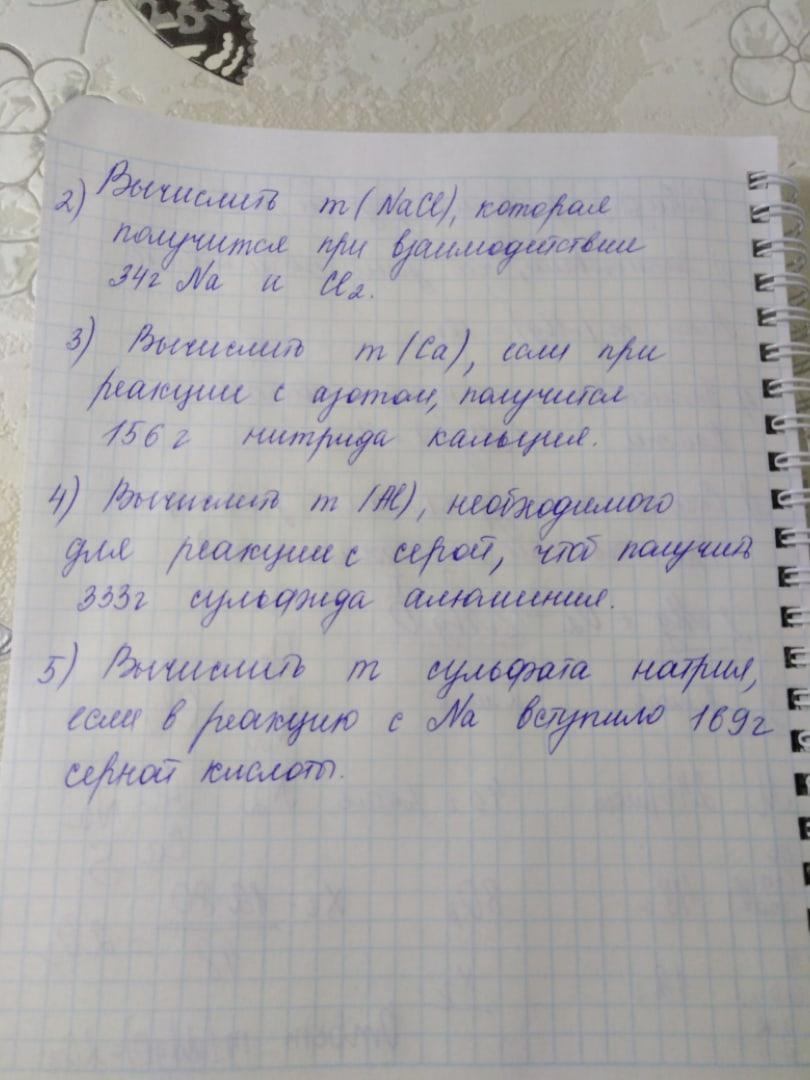 2) Вычислить m (NaCl), которая
получится при взаимодействии
34г Na и Cl₂.
3) Вычислить m (Ca), если при
реакции с азотом, получится
156 г нитрида кальция.
4) Вычислить m (Al), необходимого
для реакции с серой, чтоб получить
333г сульфида алюминия.
5) Вычислить m сульфата натрия,
если в реакцию с Na вступило 169г
серной кислоты.